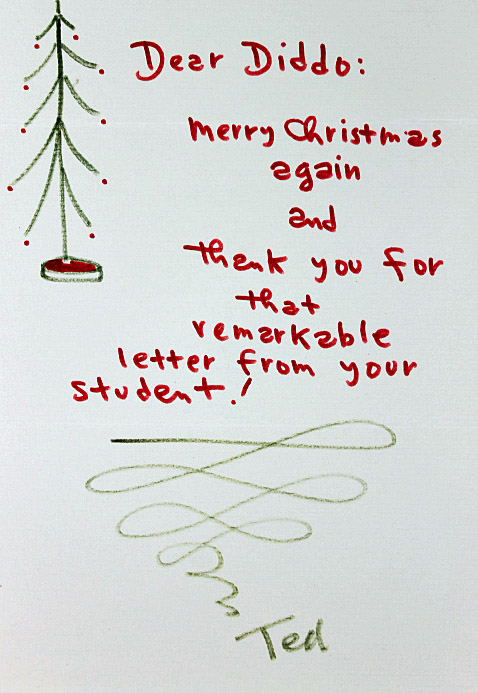 Dear Diddo:
merry Christmas
again
and
thank you for
that
remarkable
letter from your
student.!
Ted